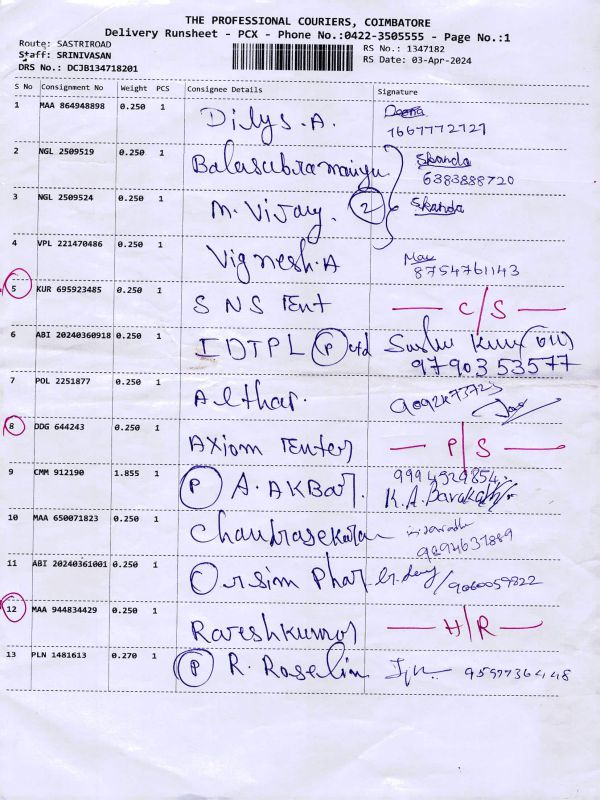 THE PROFESSIONAL COURIERS, COIMBATORE
Delivery Runsheet - PCX - Phone No.:0422-3505555 - Page No.:1
Route: SASTRIROAD
RS No.: 1347182
Staff: SRINIVASAN
RS Date: 03-Apr-2024
DRS No.: DCJB134718201
S No Consignment No Weight PCS Consignee Details Signature
1 MAA 864948898 0.250 1 Dilys.A. Deena
7667772727
2 NGL 2509519 0.250 1 Balasubramaniyu Skanda
6383888720
3 NGL 2509524 0.250 1 M. Vijay. 2 Skanda
4 VPL 221470486 0.250 1 Vignesh.A
8754761143
5 KUR 695923485 0.250 1 SNS Ent C/S
6 ABI 20240360918 0.250 1 IDTPL P Ltd
9790353577
7 POL 2251877 0.250 1 Althar.
8 DDG 644243 0.250 1 Axiom Enter P/S
9 CMM 912190 1.855 1 P A. AKBar. 9994929854
K.A.Barakath
10 MAA 650071823 0.250 1 Chandrasekaran
11 ABI 20240361001 0.250 1 Orsim Phar /9060059822
12 MAA 944834429 0.250 1 Raveshkumar H/R
13 PLN 1481613 0.270 1 P R. Roselin 9597736448